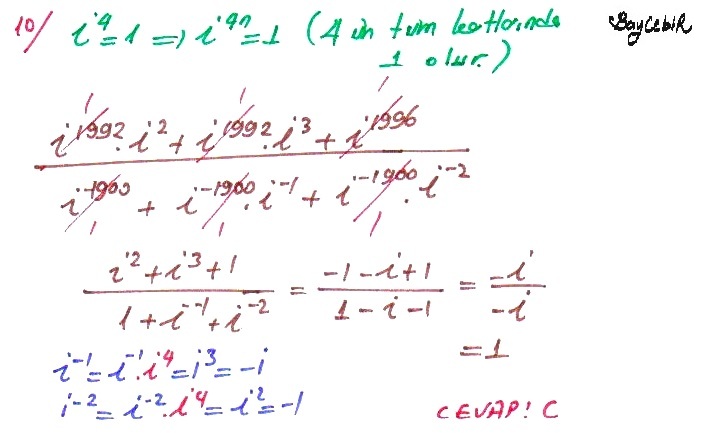 10/ i^4=1 => i^4n=1 (4 ün tüm katlarında
1 olur.)
BayCebiR
i^1992.i^2 + i^1992.i^3 + i^1996
i^-1900 + i^-1900.i^-1 + i^-1900.i^-2
1 1 1
1 1 1
i^2+i^3+1 / 1+i^-1+i^-2 = -1-i+1 / 1-i-1 = -i / -i
=1
i^-1=i^-1.i^4=i^3=-i
i^-2=i^-2.i^4=i^2=-1
CEVAP: C